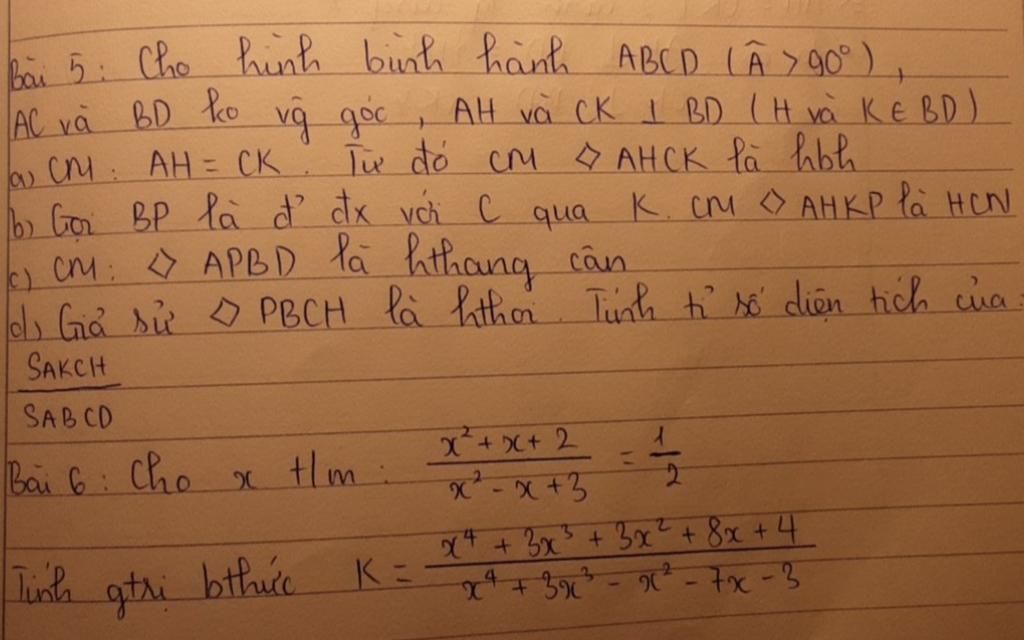 Bài 5: Cho hình bình hành ABCD (Â > 90°),
AC và BD ko vg góc, AH và CK ⊥ BD (H và K ∈ BD)
a) CM: AH = CK. Từ đó CM ◇ AHCK là hbh
b) Gọi BP là đ' đx với C qua K. CM ◇ AHKP là HCN
c) CM: ◇ APBD là hthang cân
d) Giả sử ◇ PBCH là hthoi. Tính tỉ số diện tích của:
SAKCH
SABCD
Bài 6: Cho x t/m: (x² + x + 2)/(x² - x + 3) = 1/2
Tính gtrị bthức K = (x⁴ + 3x³ + 3x² + 8x + 4)/(x⁴ + 3x³ - x² - 7x - 3)